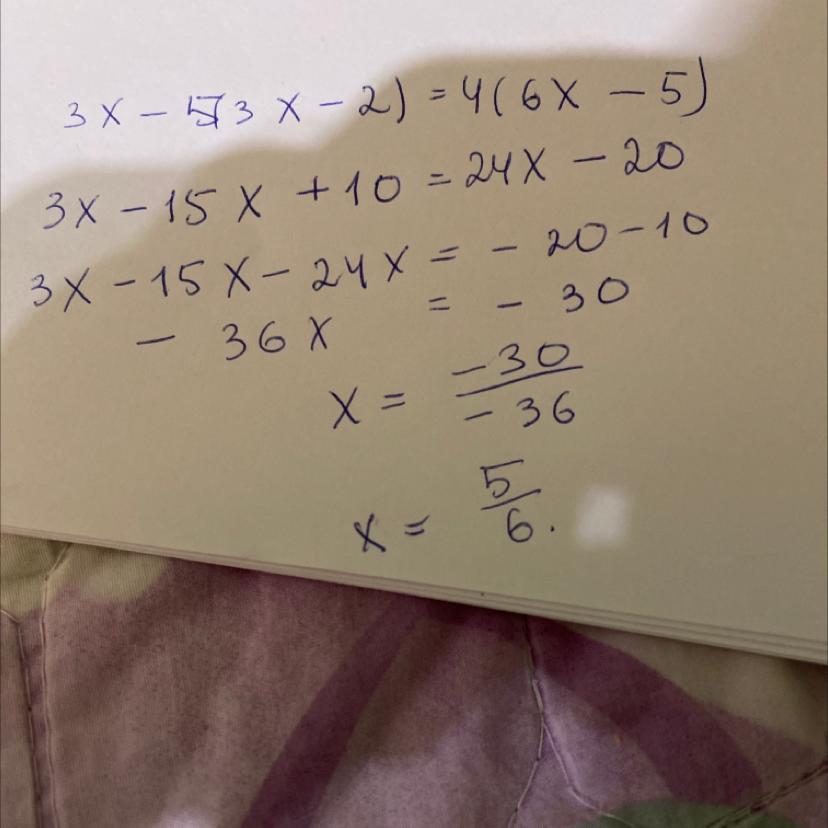 3x - 5(3x - 2) = 4(6x - 5)
3x - 15x + 10 = 24x - 20
3x - 15x - 24x = - 20 - 10
- 36x = - 30
x = -30/-36
x = 5/6.